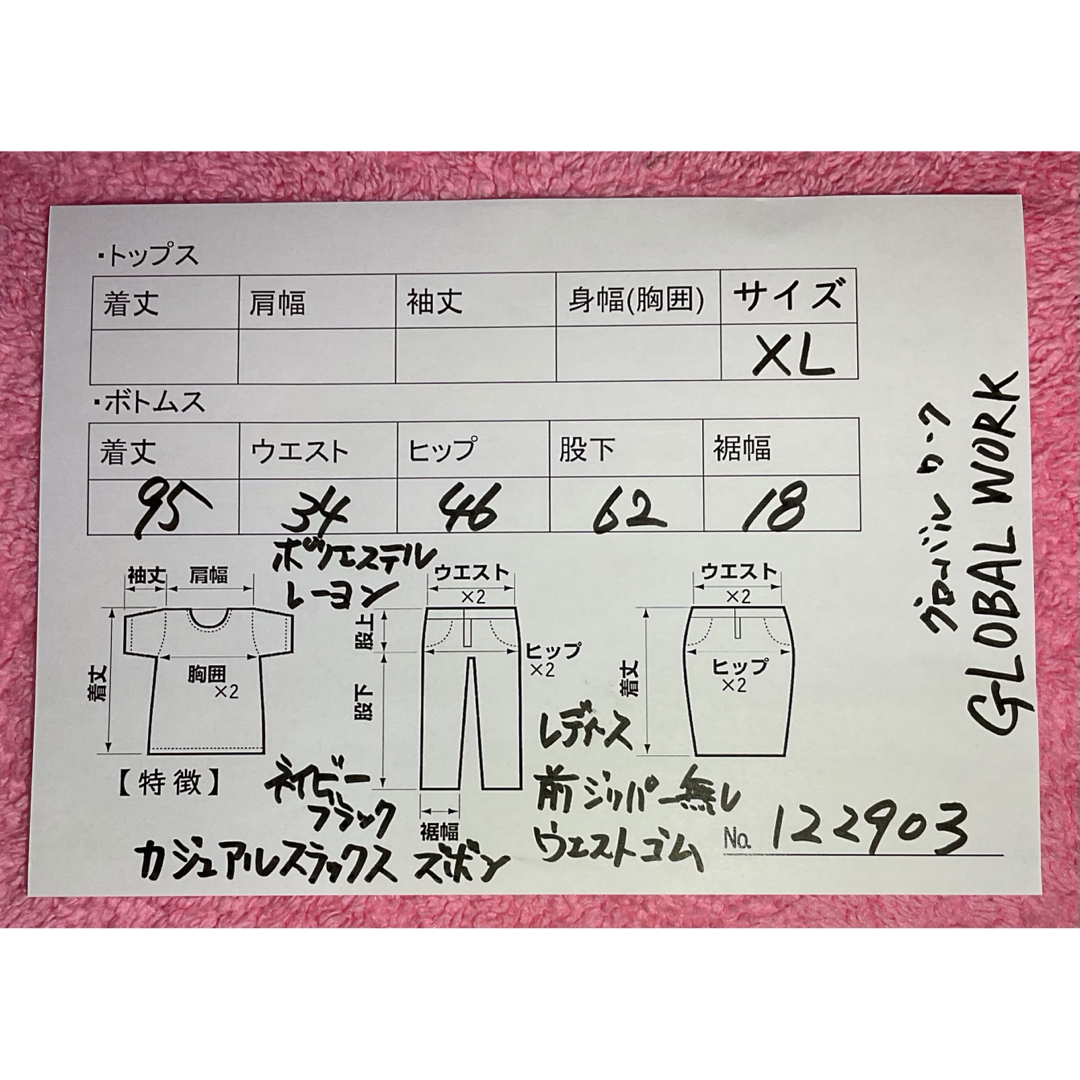 ・トップス
着丈 肩幅 袖丈 身幅(胸囲) サイズ
XL
・ボトムス
着丈 ウエスト ヒップ 股下 裾幅
95 34 46 62 18
ポリエステル
レーヨン
袖丈 肩幅
着丈
胸囲
×2
ウエスト
×2
股上
股下
ヒップ
×2
裾幅
ウエスト
×2
着丈
ヒップ
×2
グローバル ワーク
GLOBAL WORK
【特徴】
ネイビー
ブラック
カジュアルスラックス ズボン
レディース
前ジッパー無し
ウエストゴム
No. 122903